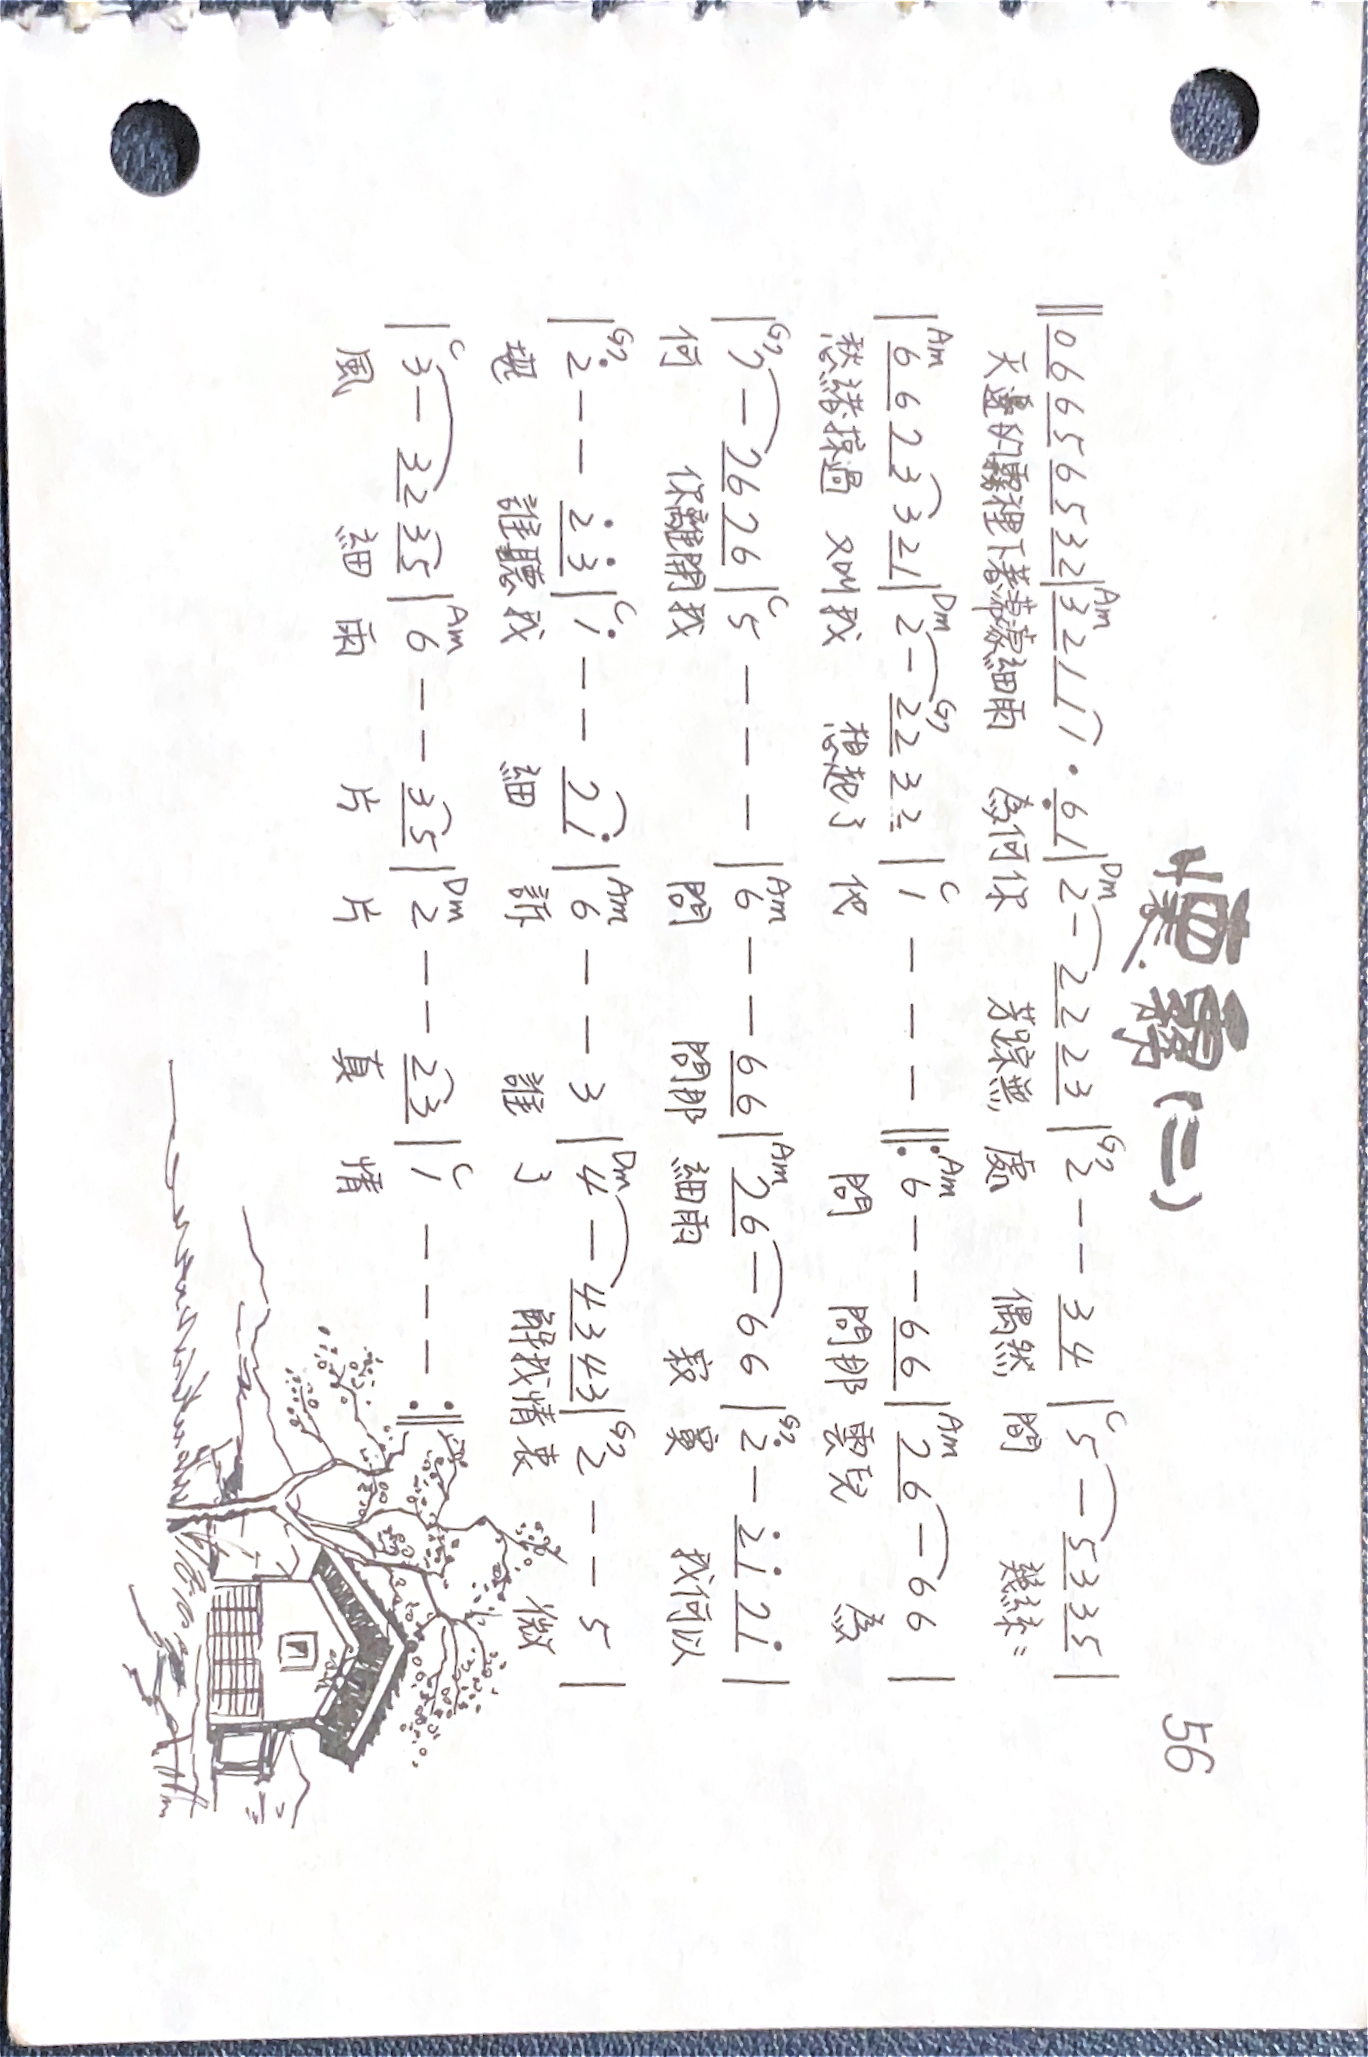 懷霧(二)
56
Am Dm G7 C
‖0 6 6 5 6 5 3 2|3 2 1 1 1 · 6̣ 1|2 - 2 2 2 3|2 - - 3 4|5 - 5 3 3 5|
天邊的霧裡下著濛濛細雨 為何你 芳踪無 處 偶然 問 幾絲:
Am Dm G7 C Am Am
|6 6 7 3 3 2 1|2 - 2 2 3 2|1 - - -‖:6 - - 6 6|7 6 - 6 6|
愁緒掠過 又叫我 想起了 他 問 問那 雲兒 為
G7 C Am Am G7
|7 - 7 6 7 6|5 - - -|6 - - 6 6|7 6 - 6 6|2̇ - 2̇ 1̇ 7 1̇|
何 你離開我 問 問那 細雨 寂 寞 我何以
G7 C Am Dm G7
|2̇ - - 2̇ 3̇|1̇ - - 7 1̇|6 - - 3|4 - 4 3 4 3|2 - - 5|
誰聽我 細 訴 誰 了 解我情衷 微
C Am Dm C
|3 - 3 2 3 5|6 - - 3 5|2 - - 2 3|1 - - -:‖
風 細 雨 片 片 真 情